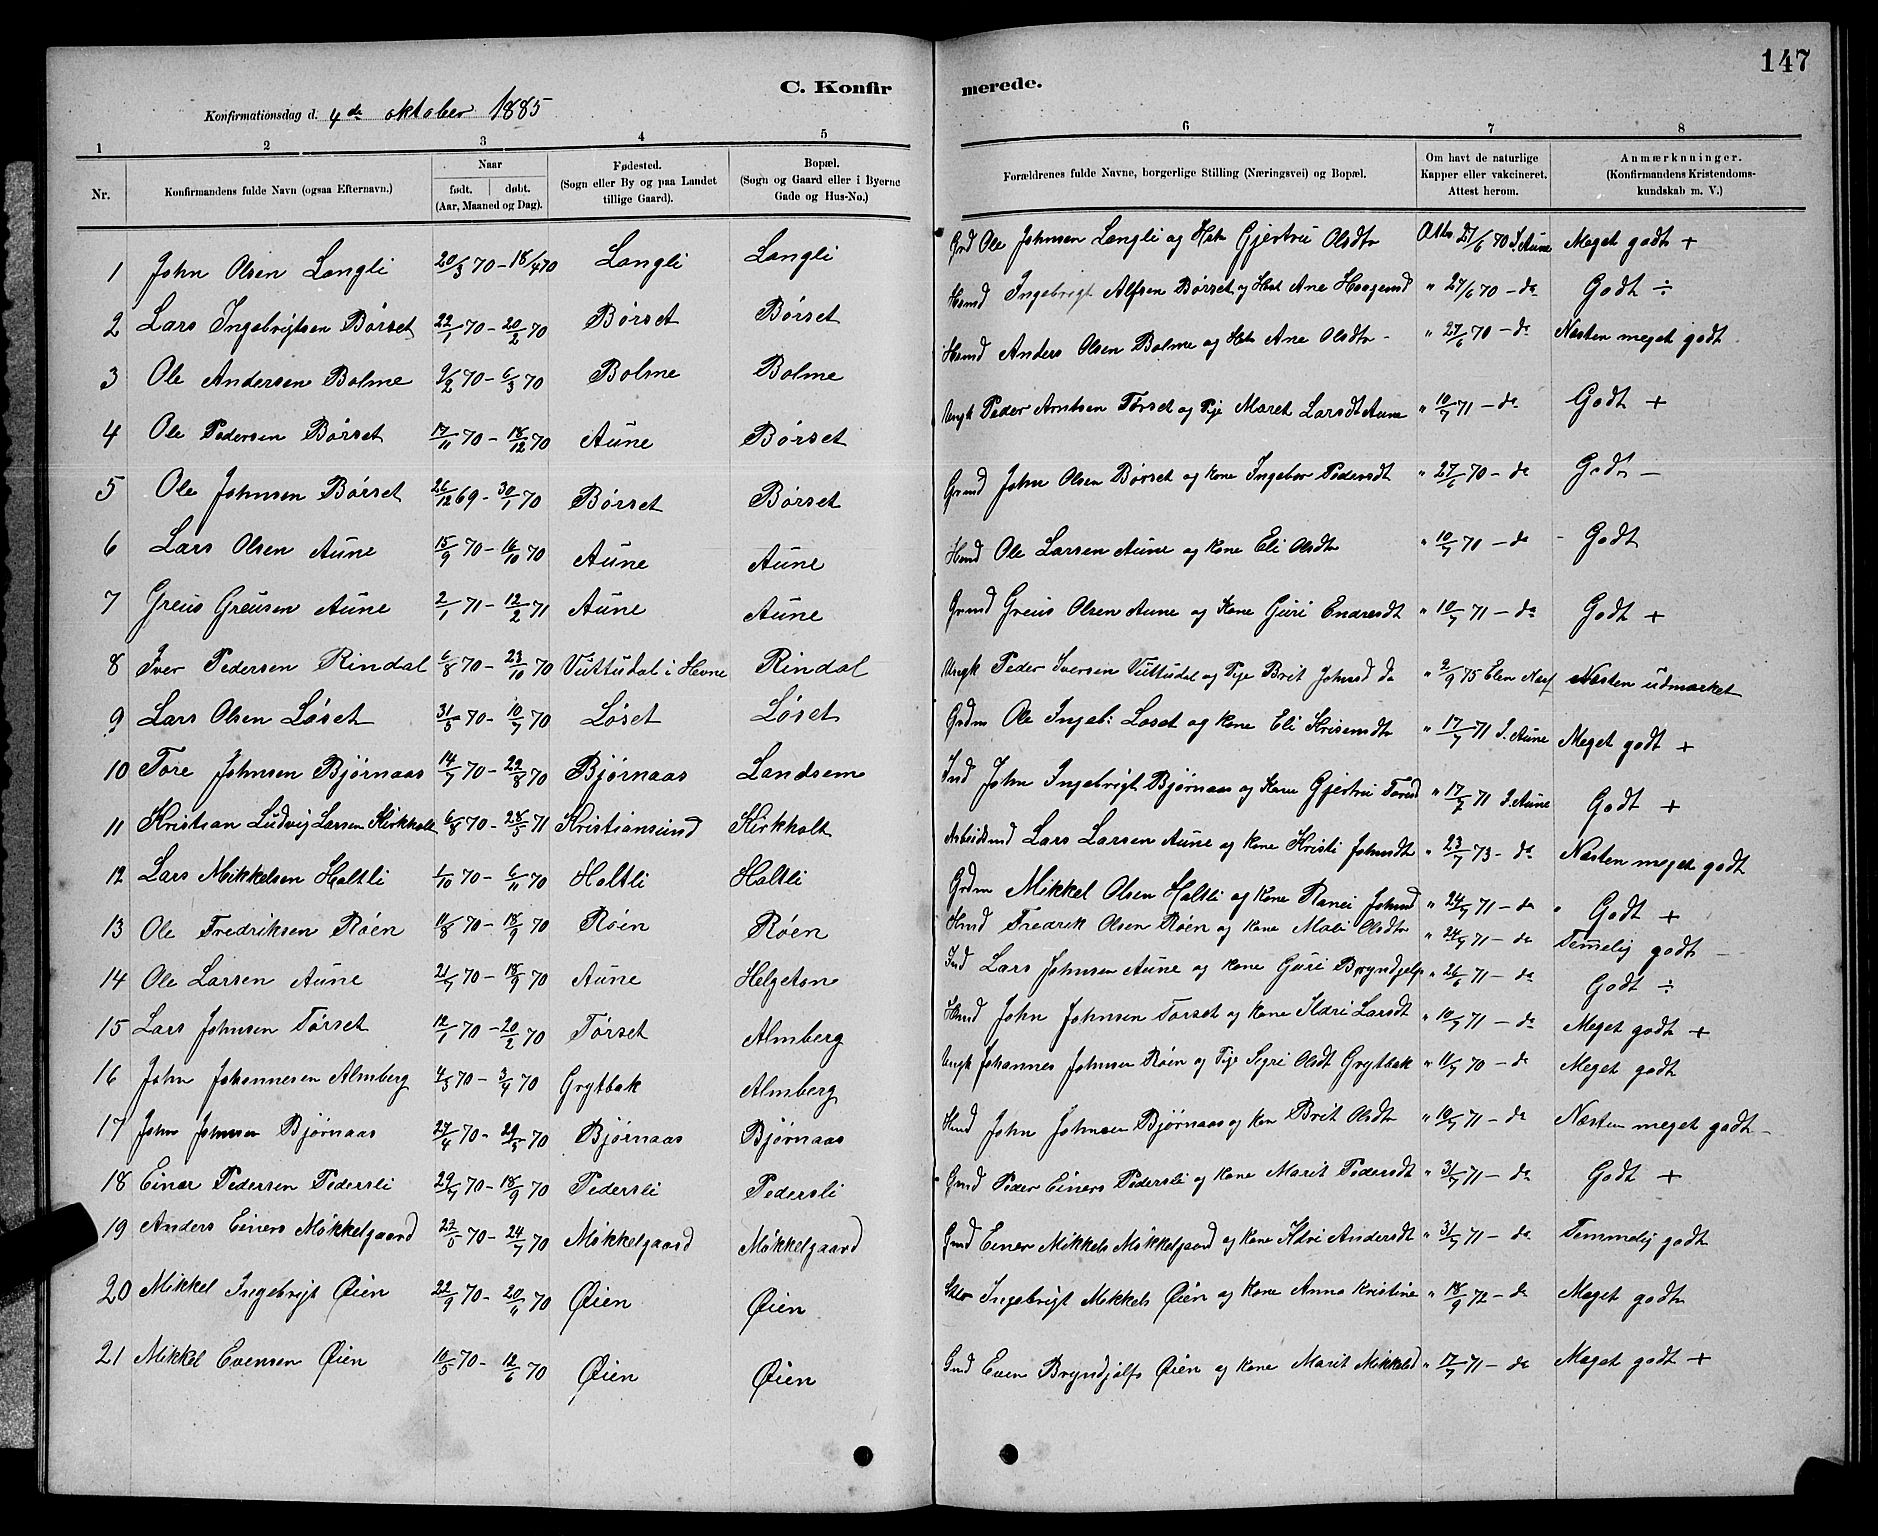 147
C. Konfirmerede.
Konfirmationsdag d. 4de oktober 1885
1 2 3 4 5 6 7 8
Nr. Konfirmandens fulde Navn (ogsaa Efternavn.) Naar født. døbt. (Aar, Maaned og Dag). Fødested. (Sogn eller By og paa Landet tillige Gaard). Bopæl. (Sogn og Gaard eller i Byerne Gade og Hus-No.) Forældrenes fulde Navne, borgerlige Stilling (Næringsvei) og Bopæl. Om havt de naturlige Kapper eller vakcineret. Attest herom. Anmærkninger. (Konfirmandens Kristendomskundskab m. V.)
1 John Olsen Langli 20/3 70 - 18/4 70 Langli Langli Grd Ole Johnsen Langli og Hst Gjertru Olsdtr Atts 27/6 70 I. Aune Meget godt +
2 Lars Ingebrigtsen Børset 22/1 70 - 20/2 70 Børset Børset Hsmd Ingebrigt Alfsen Børset og Hst Ane Haagensd " 27/6 70 - do Godt ÷
3 Ole Andersen Bolme 9/2 70 - 6/3 70 Bolme Bolme Hsmd Anders Olsen Bolme og Hst Ane Olsdtr - " 27/6 70 - do Næsten meget godt
4 Ole Pedersen Børset 17/11 70 - 18/12 70 Aune Børset Ungk Peder Arntsen Tørset og Pije Maret Larsdt Aune " 10/7 71 - do Godt +
5 Ole Johnsen Børset 26/12 69 - 30/1 70 Børset Børset Grmd John Olsen Børset og kone Ingebor Pedersdt " 27/6 70 - do Godt -
6 Lars Olsen Aune 15/9 70 - 16/10 70 Aune Aune Hsmd Ole Larsen Aune og kone Eli Olsdtr " 10/7 71 - do - Godt
7 Greus Greusen Aune 2/1 71 - 12/2 71 Aune Aune Grmd Greus Olsen Aune og Kone Guri Endresdt " 10/7 71 - do Godt +
8 Iver Pedersen Rindal 6/8 70 - 23/10 70 Vuttudal i Hevne Rindal Ungk Peder Iversen Vuttudal og Pije Brit Johnsd do " 2/9 75 Næsten udmærket
9 Lars Olsen Løset 31/5 70 - 10/7 70 Løset Løset Grdm Ole Ingeb: Løset og kone Eli " 17/7 71 I. Aune Meget godt +
10 Tore Johnsen Bjørnaas 14/7 70 - 22/8 70 Bjørnaas Landsem Ind John Ingebrigt Bjørnaas og Kone Gjertru Toresd " 17/7 71 I. Aune Godt +
11 Kristian Ludvig Larsen Kirkholt 6/8 70 - 28/5 71 Kristiansund Kirkholt Arbeidsmd Lars Larsen Aune og kone Kristi Johnsdt " 23/7 73 - do Næsten meget godt
12 Lars Mikkelsen Holtli 1/10 70 - 6/11 70 Holtli Holtli Grdm Mikkel Olsen Holtli og kone Ranei Johnsd " 24/7 71 - do Godt +
13 Ole Fredriksen Røen 11/8 70 - 18/9 70 Røen Røen Hsmd Fredrik Olsen Røen og kone Mali Olsdtr " 24/7 71 - do Temmelig godt -
14 Ole Larsen Aune 21/7 70 - 18/9 70 Aune Helgeton Ind Lars Johnsen Aune og kone Guri Bryndjelfs " 26/6 71 - do Godt ÷
15 Lars Johnsen Tørset 12/1 70 - 20/2 70 Tørset Almberg Hsmd John Johnsen Tørset og kone Ildri Larsdt " 10/7 71 - do Meget godt +
16 John Johannesen Almberg 4/3 70 - 3/4 70 Grytbak Almberg Ungk Johannes Johnsen Røen og Pije Segri Olsdt Grytbak " 11/7 70 - do Meget godt
17 John Johnsen Bjørnaas 27/4 70 - 29/5 70 Bjørnaas Bjørnaas Hsmd John Johnsen Bjørnaas og kone Brit Olsdtr " 10/7 71 - do Næsten meget godt -
18 Einer Pedersen Pedersli 29/7 70 - 18/9 70 Pedersli Pedersli Gmd Peder Einers Pedersli og kone Marit Pedersdt " 31/7 71 - do Godt +
19 Anders Einers Møkkelgaard 22/5 70 - 24/7 70 Møkkelgaard Møkkelgaard Gmd Einer Mikkels Møkkelgaard og kone Ildri Andersdt " 31/7 71 - do Temmelig godt
20 Mikkel Ingebrigt Øien 22/9 70 - 20/11 70 Øien Øien Ingebrigt Mikkels Øien og kone Anna Kristine " 18/9 72 - do Meget godt
21 Mikkel Evensen Øien 10/5 70 - 12/6 70 Øien Øien Gmd Even Bryndjolfs Øien og kone Marit Mikkelsd " 17/7 71 - do Meget godt +